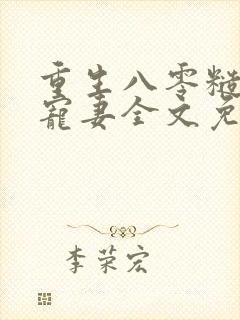 重生八零糙
宠妻全文免
李荣宏